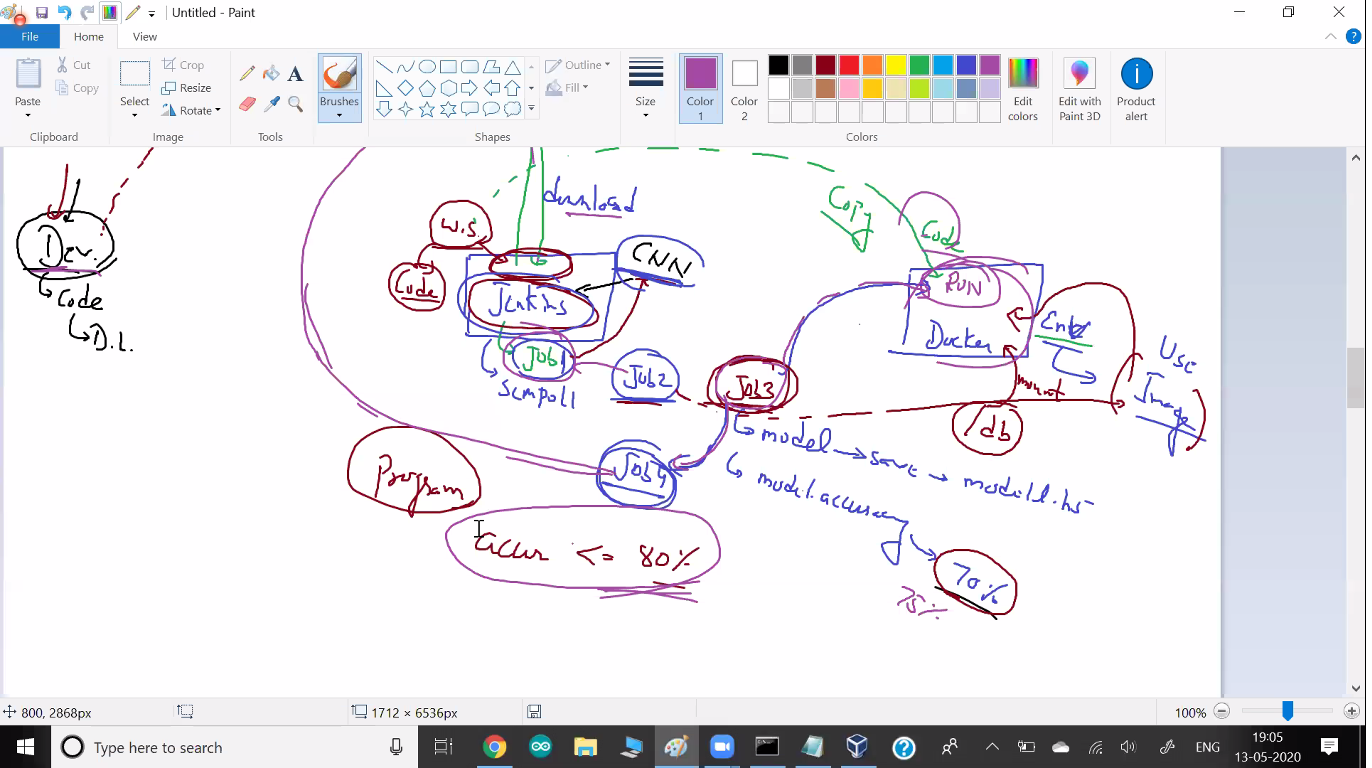 Untitled - Paint
File
Home
View
Paste
Cut
Copy
Clipboard
Select
Crop
Resize
Rotate
Image
Tools
Brushes
Shapes
Outline
Fill
Size
Color 1
Color 2
Edit colors
Colors
Edit with Paint 3D
Product alert
Dev.
Code
D.L.
download
W.S.
Code
CNN
Jenkins
Job1
Scmpoll
Job2
Job3
Job4
Copy
Code
RUN
Docker
Env
Use
Image
mount
/db
model → save → model1.h5
model.accuracy
Program
accur <= 80%
70%
75%
800, 2868px
1712 × 6536px
100%
Type here to search
ENG
19:05
13-05-2020